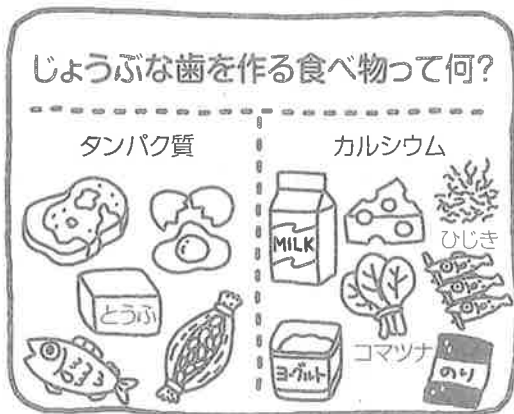 じょうぶな歯を作る食べ物って何?
タンパク質
とうふ
カルシウム
MILK
ひじき
コマツナ
ヨーグルト
のり